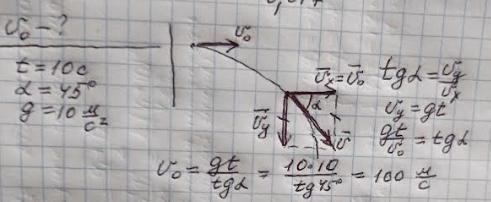 v₀ - ?
t = 10c
α = 45°
g = 10 м/с²
v⃗₀
v⃗ₓ = v⃗₀
α
v⃗ᵧ
v⃗
tgα = vᵧ/vₓ
vᵧ = gt
gt/v₀ = tgα
v₀ = gt/tgα = 10·10/tg45° = 100 м/с